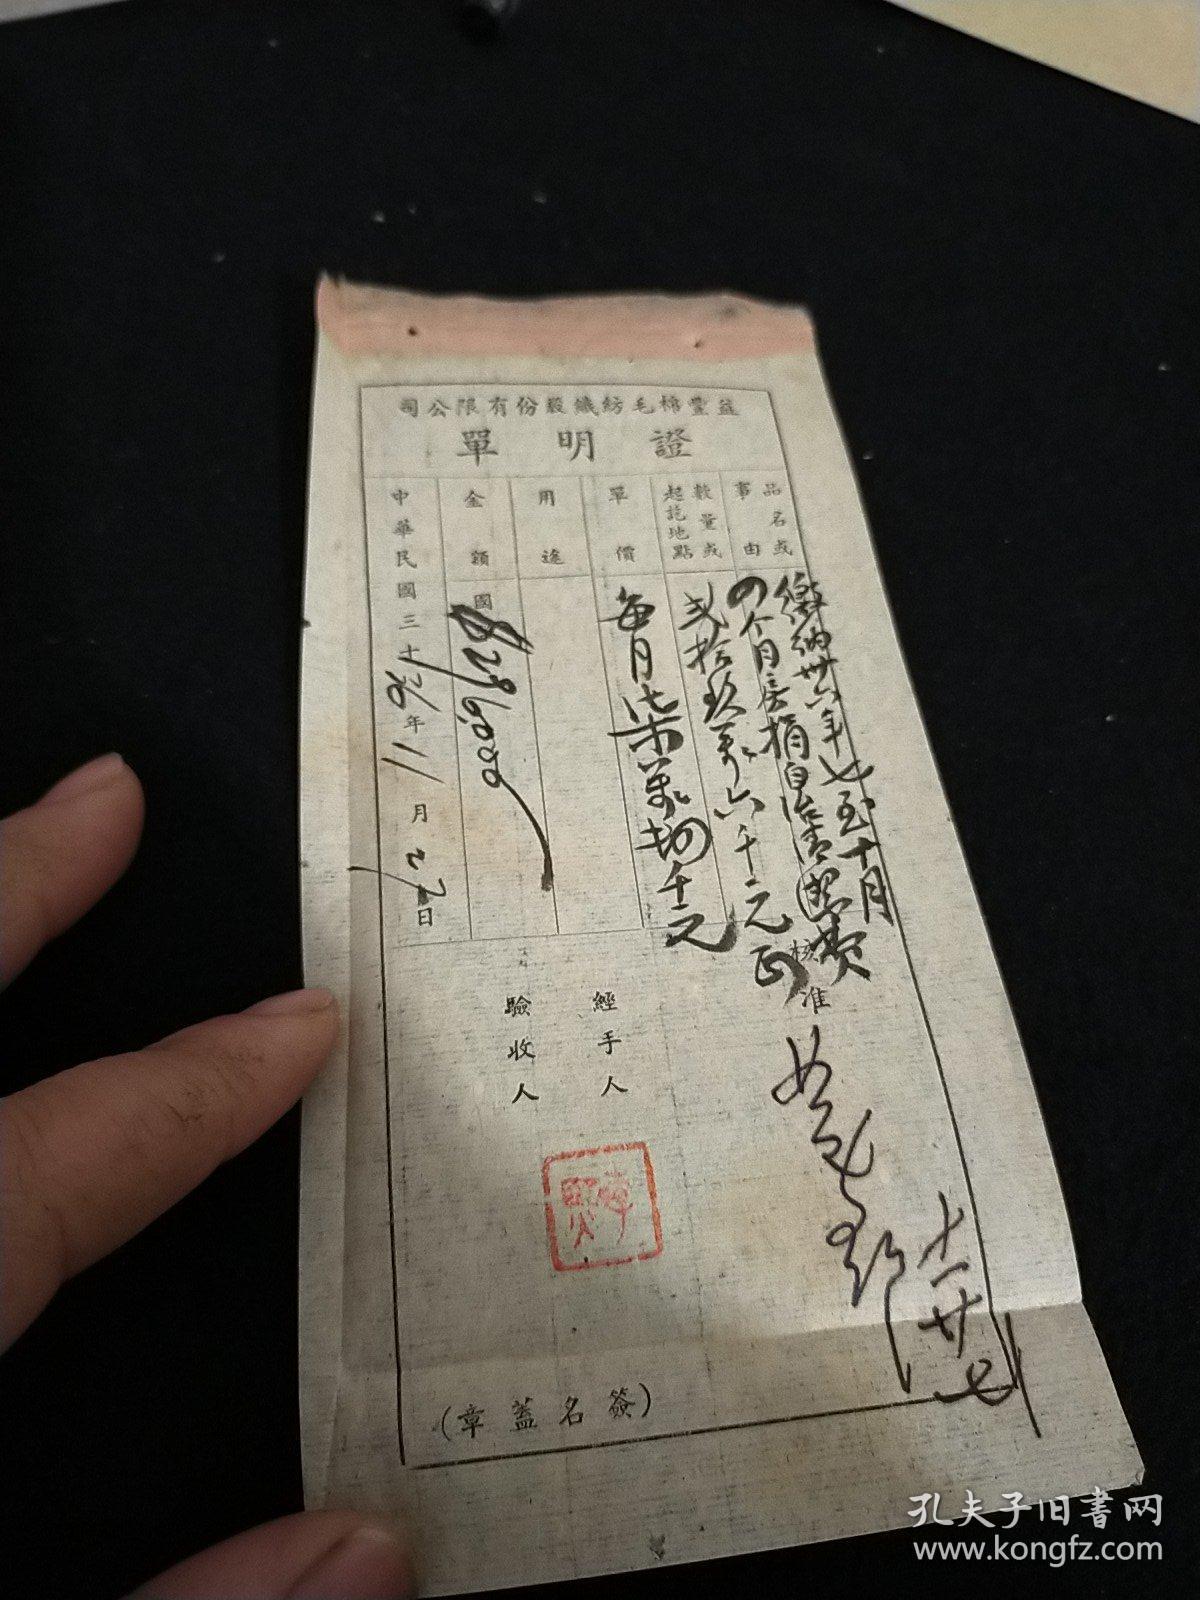 益豐棉毛紡織股份有限公司
證明單
品名或
事由
數量或
起訖地點
單價
用途
金額
中華民國三十36年11月27日
繳納卅六年七至十月
四个月房捐自治清潔費
貳拾玖萬六千元正
每月柒萬肆千元
國
$296,000
核准
經手人
驗收人
十一 廿七
(簽名蓋章)
孔夫子旧书网
www.kongfz.com